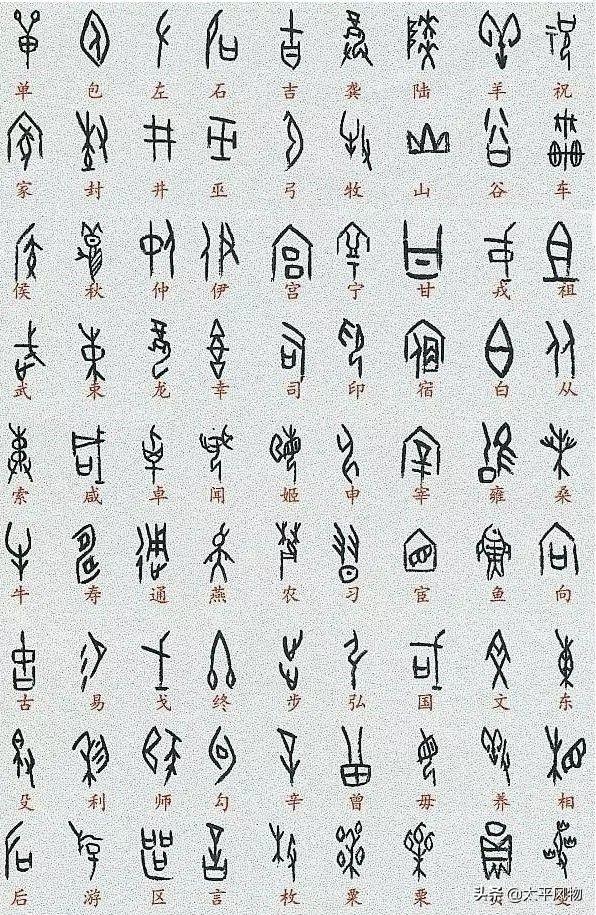 单 包 左 石 吉 龚 陆 羊 祝
家 封 井 巫 弓 牧 山 谷 车
侯 秋 仲 伊 宫 宁 甘 戎 祖
武 束 龙 幸 司 印 宿 白 从
索 咸 卓 闻 姬 申 宰 雍 桑
牛 寿 通 燕 农 习 宦 鱼 向
古 易 戈 终 步 弘 国 文 东
殳 利 师 勾 辛 曾 毋 养 相
后 游 区 言 枚 粟 栗
头条 @太平风物